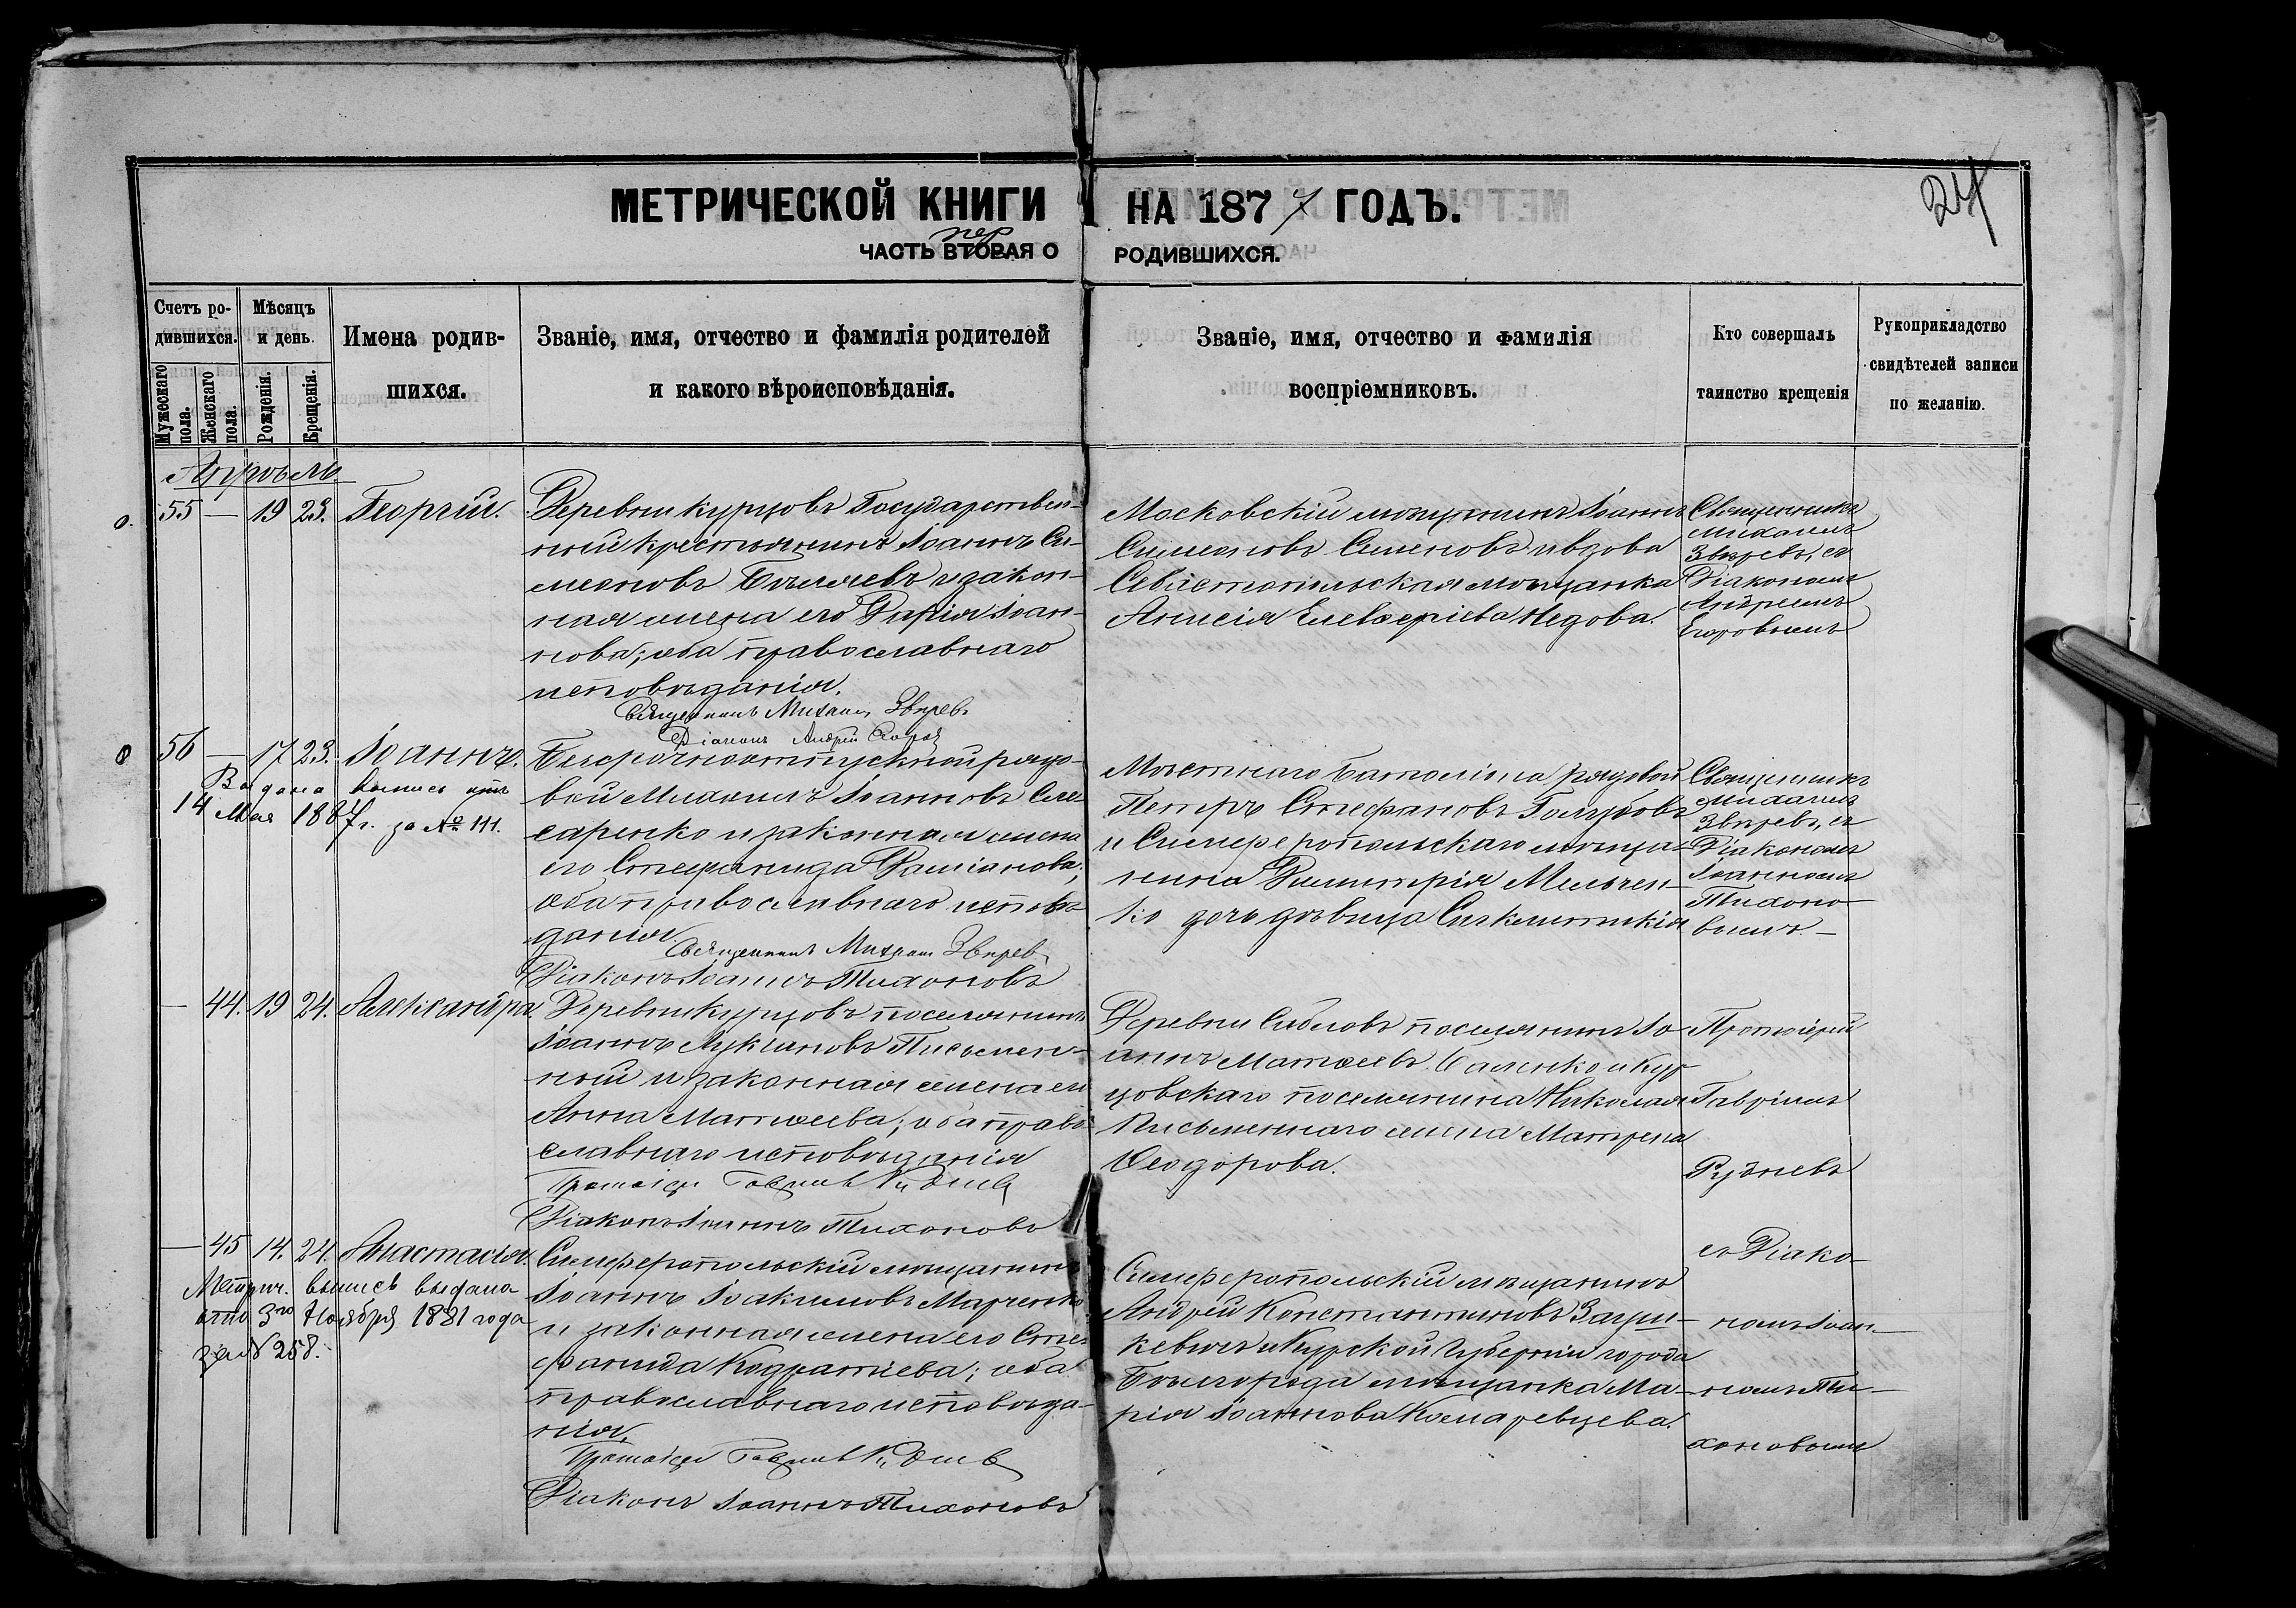 24
МЕТРИЧЕСКОЙ КНИГИ НА 1877 ГОДЪ.
пер
ЧАСТЬ ВТОРАЯ О РОДИВШИХСЯ.
Счетъ ро-
дившихся.
Мужескаго пола.
Женскаго пола.
Мѣсяцъ
и день.
Рожденія.
Крещенія.
Имена родив-
шихся.
Званіе, имя, отчество и фамилія родителей
и какого вѣроисповѣданія.
Званіе, имя, отчество и фамилія
воспріемниковъ.
Кто совершалъ
таинство крещенія
Рукоприкладство
свидѣтелей записи
по желанію.
Апрѣль
55 — 19 23. Георгій.
Деревни Курцовъ Государствен-
ный крестьянинъ Іоаннъ Си-
меоновъ Бѣляевъ и закон-
ная жена его Дарія Іоан-
нова; оба православнаго
исповѣданія.
Священникъ Михаилъ Звѣревъ
Діаконъ Андрей
Московскій мѣщанинъ Іоаннъ
Симеоновъ Семеновъ и вдова
Севастопольская мѣщанка
Анисія Елевферіева Недова.
Священникъ
Михаилъ
Звѣревъ, съ
Діакономъ
Андреемъ
Егоровымъ
56 — 17 23. Іоаннъ.
Выдана выпись
14 Мая 1887 г. за № 111.
Безсрочноотпускной рядо-
вой Михаилъ Іоанновъ Сле-
саренко и законная жена
его Стефанида Даміанова;
оба православнаго исповѣ-
данія.
Священникъ Михаилъ Звѣревъ
Діаконъ Іоаннъ Тихоновъ
Мѣстнаго баталіона рядовой
Петръ Стефановъ Голубовъ
и Симферопольскаго мѣща-
нина Димитрія Мельчен-
ко дочь дѣвица Синклитикія
Священникъ
Михаилъ
Звѣревъ, съ
Діакономъ
Іоанномъ
Тихоно-
вымъ.—
— 44. 19 24. Александра.
Деревни Курцовъ поселянинъ
Іоаннъ Лукіановъ Письмен-
ный и законная жена его
Анна Матѳеева; оба право-
славнаго исповѣданія
Протоіерей Гавріилъ Рудневъ
Діаконъ Іоаннъ Тихоновъ
Деревни Сабловъ поселянинъ Іо-
аннъ Матѳеевъ Саленко и Кур-
цовскаго поселянина Николая
Письменнаго жена Матрена
Ѳеодорова.
Протоіерей
Гавріилъ
Рудневъ
— 45 14. 24. Анастасія.
Метрич. выпись выдана
отъ 3го Ноября 1881 года
за № 258.
Симферопольскій мѣщанинъ
Іоаннъ Іоакимовъ Марченко
и законная жена его Сте-
фанида Кодратіева; оба
православнаго исповѣда-
нія.
Протоіерей Гавріилъ Рудневъ
Діаконъ Іоаннъ Тихоновъ
Симферопольскій мѣщанинъ
Андрей Константиновъ Заци-
кевичъ и Курской Губерніи города
Бѣлгорода мѣщанка Ма-
рія Іоаннова Комаревцева.
съ Діако-
номъ Іоан-
номъ Ти-
хоновымъ